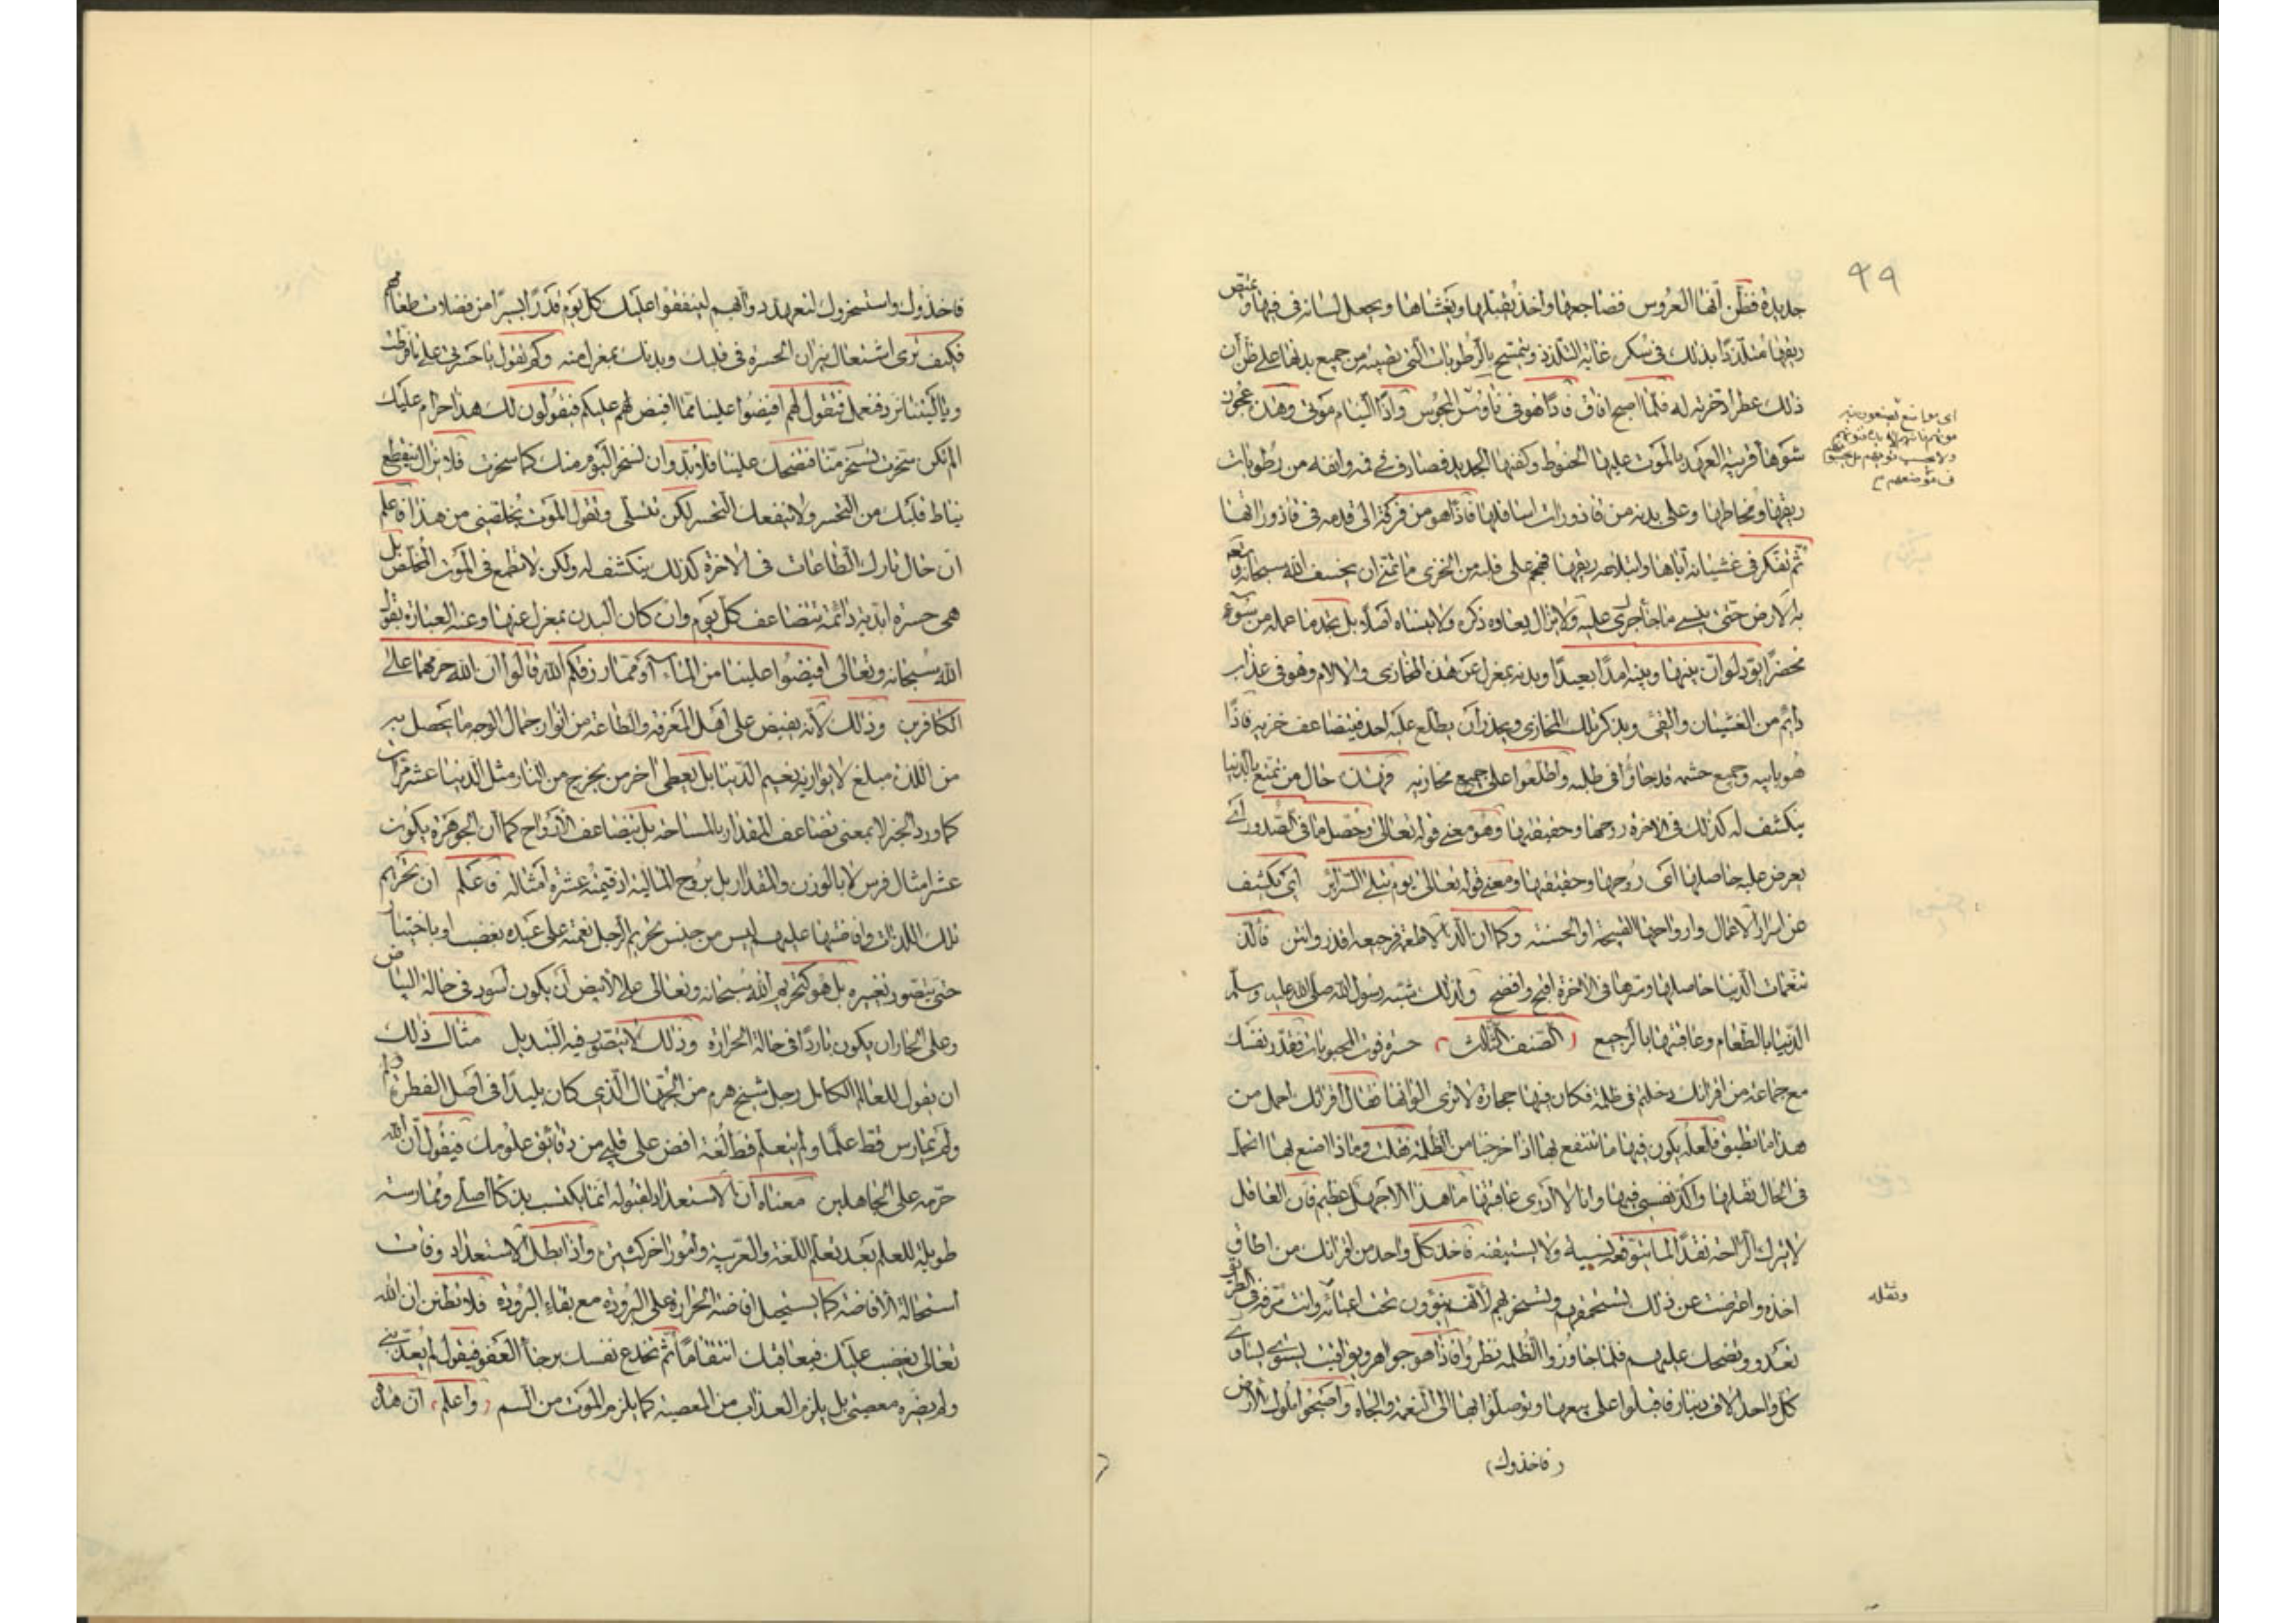 ٩٩
جديدة فظن انها العروس فضاجعها واخذ يقبلها ويغشاها ويجعل لسانه في فيها ويمتص
ريقها متلذذا بذلك في سكر غاية التلذذ ويتمسح بالرطوبات التي تصيبه من جميع بدنها على ظن ان
ذلك عطر ادخرته له فلما اصبح افاق فاذا هو في ناووس المجوس واذا النيام موتى وهذه عجوز
شوهاء قريبة العهد بالموت عليها الحنوط وكفنها الجديد فصادف في فمه وانفه من رطوبات
ريقها ومخاطها وعلى بدنه من قاذورات اسافلها فاذا هو من فرقه الى قدمه في قاذوراتها
ثم تفكر في غشيانه اياها وابتلاعه ريقها فهجم على قلبه من الخزي ما تمنى ان يخسف الله سبحانه وتعالى
به الارض حتى ينسى ما جرى عليه ولا يزال يعاوده ذكره ولا ينساه اصلا بل يجد ما عمله من سوء
محضرا يود لو ان بينها وبينه امدا بعيدا وبدنه بمعزل عن هذه المخازي والالام وهو في عذاب
دائم من الغثيان والقئ وبذكر تلك المخازي ويحذر ان يطلع عليه احد فيتضاعف خزيه فاذا
هو بابيه وجميع حشمه قد جاؤا في طلبه واطلعوا على جميع مخازيه فهذه حال من تمتع بالدنيا
ينكشف له كذلك في الاخرة روحها وحقيقتها وهو معنى قوله تعالى وحصل ما في الصدور اي
يعرض عليه حاصلها اي روحها وحقيقتها ومعنى قوله تعالى يوم تبلى السرائر اي يكشف
عن اسرار الاعمال وارواحها القبيحة او الحسنة وكما ان الذ الاطعمة رجيعه اقذر وانتن فالذ
تنعمات الدنيا حاصلها وسرها في الاخرة اقبح وافضح ولذلك شبه رسول الله صلى الله عليه وسلم
الدنيا بالطعام وعاقبتها بالرجيع (الصنف الثالث) حسرة فوت المحبوبات فقدر نفسك
مع جماعة من اقرانك دخلتم في ظلمة فكان فيها حجارة لا ترى الوانها فقال اقرانك احمل من
هذا ما نطيق فلعله يكون فيها ما ننتفع بها اذا خرجنا من الظلمة فقلت وماذا اصنع بها اتحمل
في الحال ثقلها واكد نفسي فيها وانا لا ادري عاقبتها ما هذا الا جهل عظيم فان العاقل
لا يترك الراحة نقدا لما يتوقعه نسيئة ولا يستيقنه فاخذ كل واحد من اقرانك من اطاق
اخذه واعرضت عن ذلك تستحمقهم وتسخر بهم لانهم ينوؤون تحت اعبائه وانت مترفه في الطريق
تعدو وتضحك عليهم فلما جاوزوا الظلمة نظروا فاذا هو جواهر ويواقيت يساوي
كل واحد الاف دينار فاقبلوا على بيعها وتوصلوا بها الى النعمة والجاه واصبحوا ملوك الارض
(فاخذوك)
ونقله
فاخذوك واستسخروك لتعهد دوابهم لينفقوا عليك كل يوم قدرا يسيرا من فضلات طعامهم
فكيف ترى اشتعال نيران الحسرة في قلبك وبدنك بمعزل منه وكم تقول يا حسرتى على ما فرطت
ويا ليتنا نرد فنعمل فتقول لهم افيضوا علينا مما افيض لهم عليكم فيقولون لك هذا حرام عليك
الم تكن سخرت تسخر منا فتضحك علينا فلا بد وان نسخر اليوم منك كما سخرت فلا يزال ينقطع
نياط قلبك من التحسر ولا ينفعك التحسر لكن تتسلى وتقول الموت يخلصني من هذا فاعلم
ان حال تارك الطاعات في الاخرة كذلك ينكشف له ولكن لا تطمع في الموت المخلص بل
هي حسرة ابدية دائمة تتضاعف كل يوم وان كان البدن بمعزل عنها وعنه العبارة بقول
الله سبحانه وتعالى افيضوا علينا من الماء او مما رزقكم الله قالوا ان الله حرمهما على
الكافرين وذلك لانه يفيض على اهل المعرفة والطاعة من انوار جمال الوجه ما يحصل به
من اللذة مبلغ لا يوازيه نعيم الدنيا بل يعطى اخر من يخرج من النار مثل الدنيا عشر مرات
كما ورد الخبر لا بمعنى تضاعف المقدار بالمساحة بل بتضاعف الارواح كما ان الجوهرة يكون
عشر امثال فرس لا بالوزن والمقدار بل بروح المالية اذ قيمته عشرة امثاله فاعلم ان تحريم
تلك اللذات وافاضتها عليهم ليس من جنس تحريم الرجل نعمته على عبده بغضب او باختيار
حتى يتصور تغييره بل هو كتحريم الله سبحانه وتعالى على الابيض ان يكون اسود في حالة البياض
وعلى الحار ان يكون باردا في حالة الحرارة وذلك لا يتصور فيه التبديل مثال ذلك
ان يقول للعالم الكامل رجل شيخ هرم من الجهال الذي كان بليدا في اصل الفطرة
ولم يمارس قط علما ولم يتعلم قط لغة افض على قلبي من دقائق علومك فيقول ان الله
حرمه على الجاهلين معناه ان الاستعداد لقبوله انما يكتسب بذكاء اصلي وممارسة
طويلة للعلم بعد تعلم اللغة والعربية وامور اخر كثيرة واذا بطل الاستعداد وفات
استحالة الافاضة كما يستحيل افاضة الحرارة على البرودة مع بقاء البرودة فلا تظنن ان الله
تعالى يغضب عليك فيعاقبك انتقاما ثم تخدع نفسك برجاء العفو فيقول لم يعذبني
ولم يضره معصيتي بل يلزم العذاب من المعصية كما يلزم الموت من السم (واعلم) ان هذه